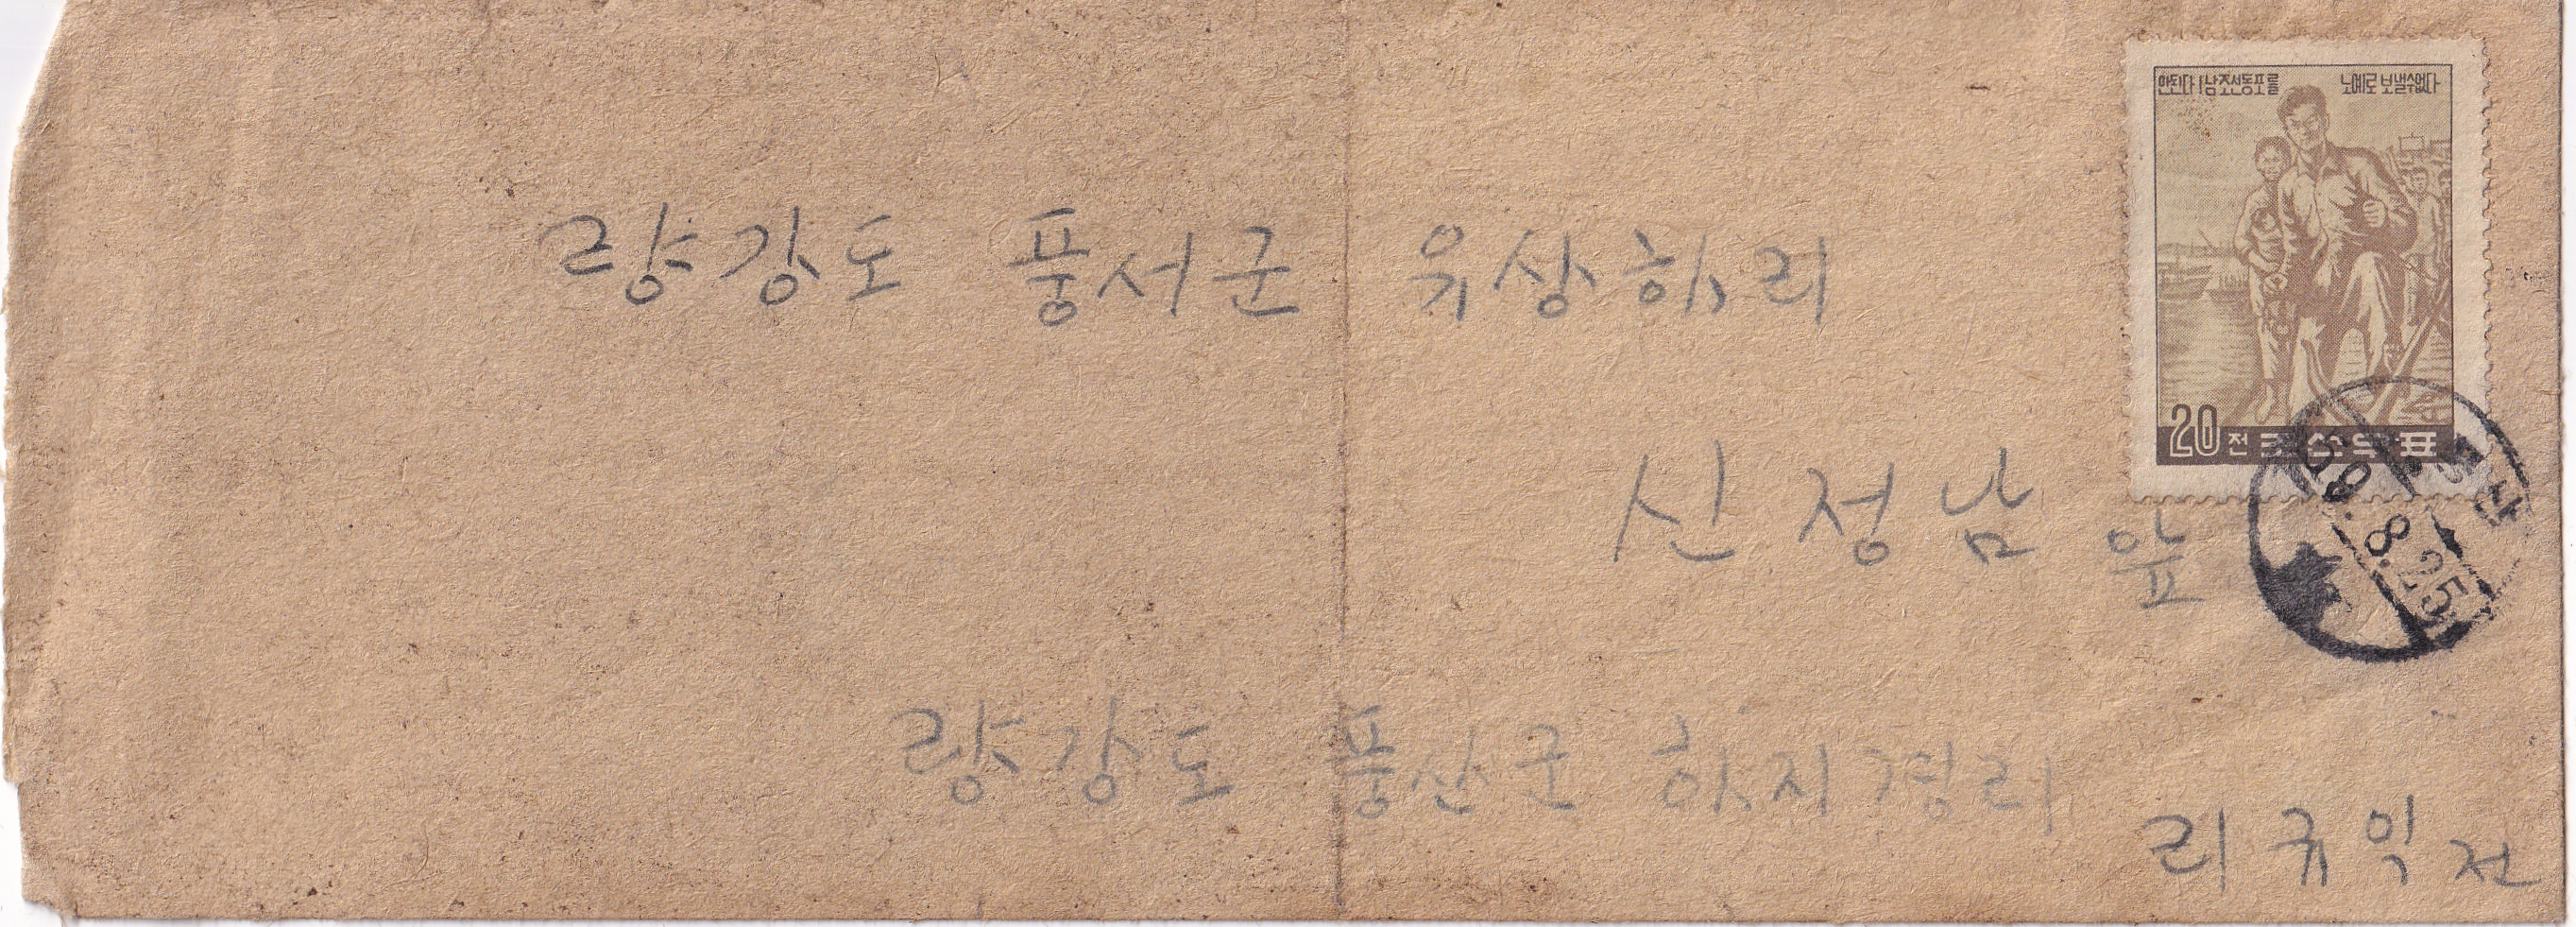 안된다! 남조선동포를 노예로 보낼수없다
량강도 풍서군 우상하리
20전 조선우표
59.8.25
신정남 앞
량강도 풍산군 하지경리
리규익 전